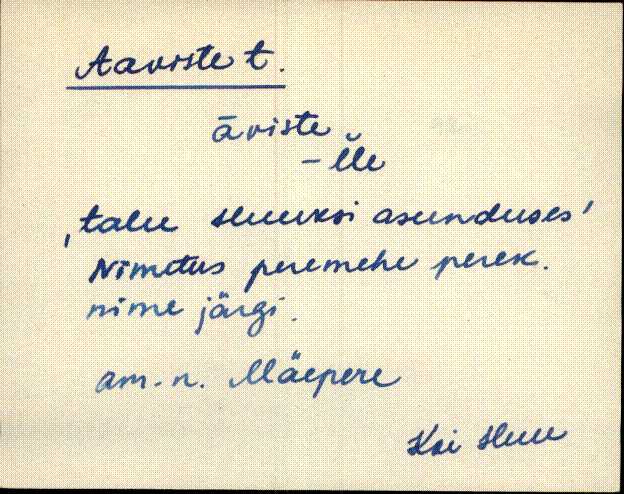 Aaviste t.
āviste
- l̆le
'talu Huuksi asunduses'
Nimetus peremehe perek.
nime järgi.
am. n. Mäepere
Koi Huu